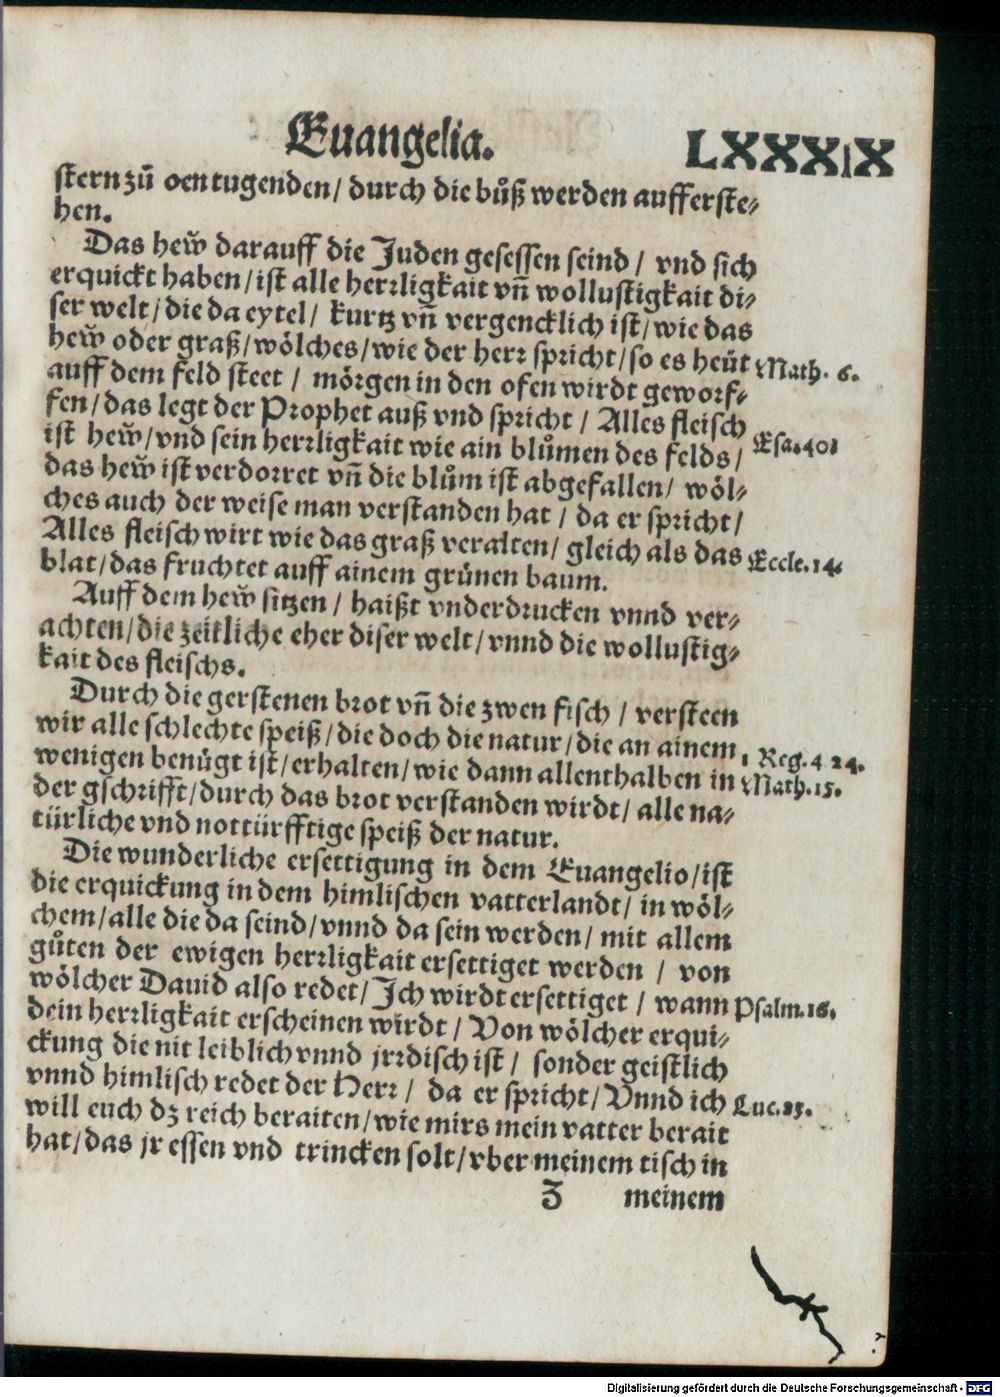 Euangelia. LXXXIX
stern zů den tugenden/ durch die bůß werden aufferste⸗
hen.
Das hew̃ darauff die Juden gesessen seind / vnd sich
erquickt haben/ist alle herꝛligkait vñ wollustigkait di⸗
ser welt/die da eytel/ kurtz vñ vergencklich ist/wie das
hew̃ oder graß/wölches/wie der herꝛ spricht/so es heüt Math. 6.
auff dem feld steet / mörgen in den ofen wirdt geworf⸗
fen/das legt der Prophet auß vnd spricht / Alles fleisch
ist hew̃/vnd sein herꝛligkait wie ain blůmen des felds/ Esa.40.
das hew̃ ist verdorret vñ die blům ist abgefallen/ wöl⸗
ches auch der weise man verstanden hat / da er spricht/
Alles fleisch wirt wie das graß veralten/ gleich als das Eccle.14.
blat/das fruchtet auff ainem grünen baum.
Auff dem hew̃ sitzen / haißt vnderdrucken vnnd ver⸗
achten/die zeitliche eher diser welt/vnnd die wollustig⸗
kait des fleischs.
Durch die gerstenen brot vñ die zwen fisch / versteen
wir alle schlechte speiß/die doch die natur/die an ainem 1 Reg.4 24.
wenigen benügt ist/erhalten/wie dann allenthalben in Math.15.
der gschrifft/durch das brot verstanden wirdt/ alle na⸗
türliche vnd nottürfftige speiß der natur.
Die wunderliche ersettigung in dem Euangelio/ist
die erquickung in dem himlischen vatterlandt/ in wöl⸗
chem/alle die da seind/vnnd da sein werden/ mit allem
gůten der ewigen herꝛligkait ersettiget werden / von
wölcher Dauid also redet/Ich wirdt ersettiget / wann Psalm.16.
dein herꝛligkait erscheinen wirdt / Von wölcher erqui⸗
ckung die nit leiblich vnnd jrꝛdisch ist / sonder geistlich
vnnd himlisch redet der Herꝛ / da er spricht/ Vnnd ich Luc.
will euch dz reich beraiten/wie mirs mein vatter berait
hat/das jr essen vnd trincken solt/vber meinem tisch in
Z meinem
Digitalisierung gefördert durch die Deutsche Forschungsgemeinschaft - DFG